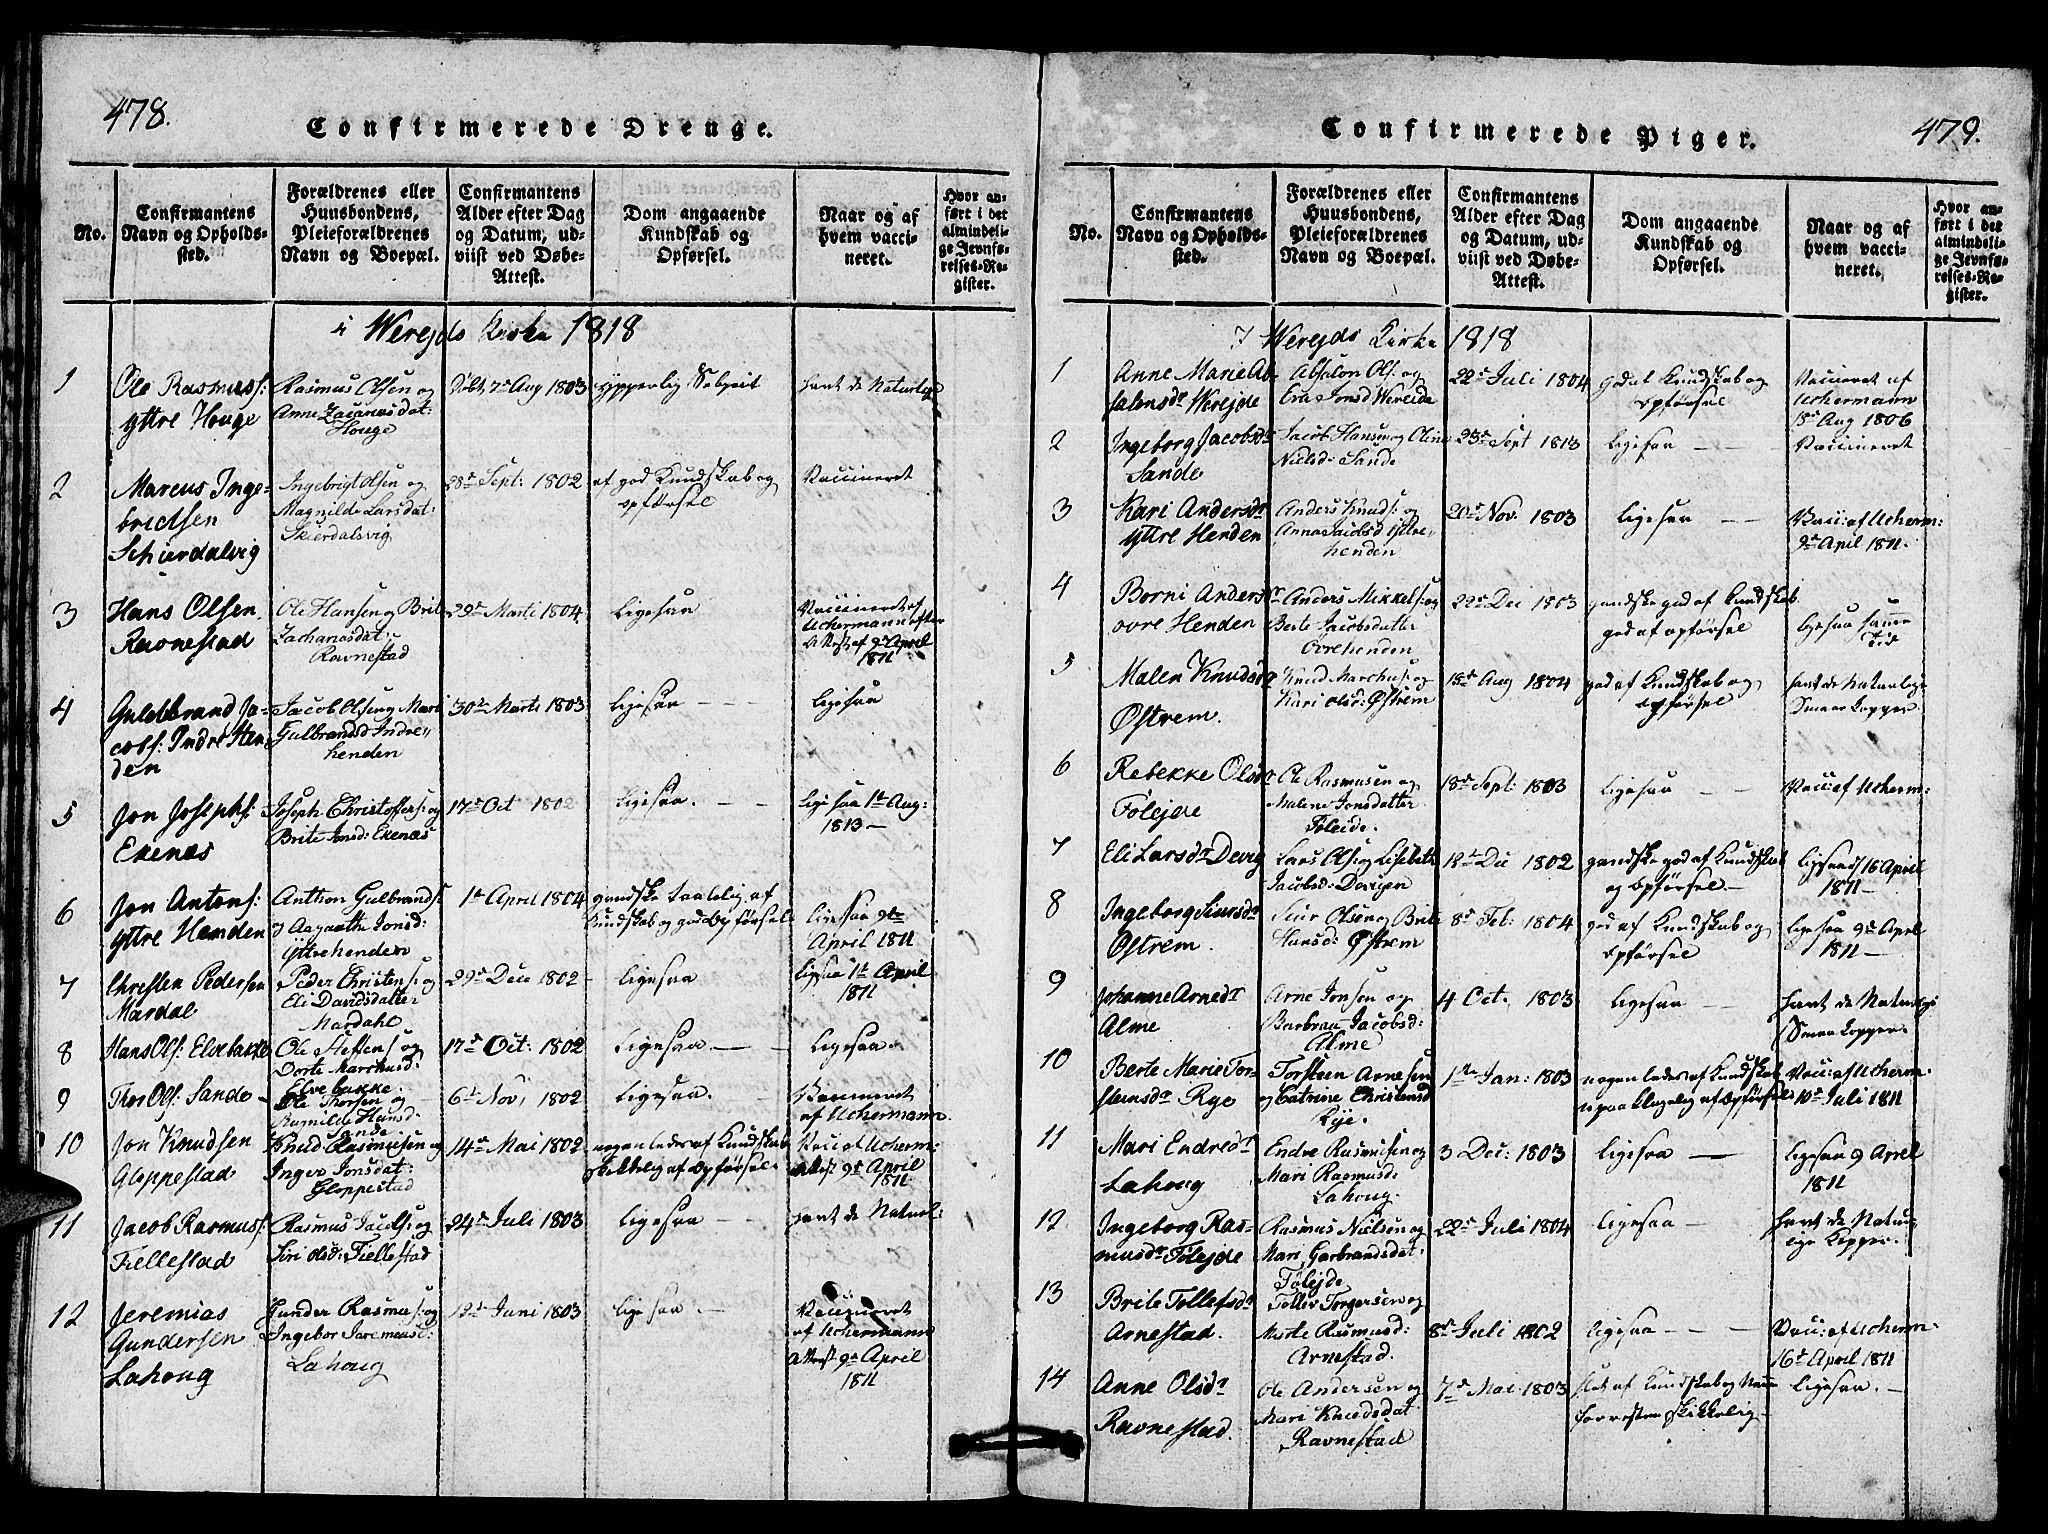 478.
Confirmerede Drenge.
No.
Confirmantens
Navn og Opholds-
sted.
Forældrenes eller
Huusbondens,
Pleieforældrenes
Navn og Boepæl.
Confirmantens
Alder efter Dag
og Datum, ud-
viist ved Døbe-
Attest.
Dom angaaende
Kundskab og
Opførsel.
Naar og af
hvem vacci-
neret.
Hvor an-
ført i det
almindeli-
ge Jevnfø-
relses-Re-
gister.
i Werejds Kirke 1818
1
Ole Rasmuss:
yttre Houge
Rasmus Olsen og
Anne Zacariasdat:
Houge
Døbt 7de Aug 1803
ypperlig
havt de Naturlige
2
Marcus Inge-
brictsen
Schierdalsvig
Ingebrigt Olsen og
Magnilde Larsdat:
Skierdalsvig
28de Sept: 1802
af god Kundskab og
opførsel
Vaccineret
3
Hans Olsen
Ravnestad
Ole Hansen og Brite
Zachariasdat:
Ravnestad
29de Marti 1804
Ligesaa
Vaccineret af
Uchermann efter
Attest af 9de April
1811
4
Guldbrand Ja-
cobs: Indre Hen-
den
Jacob Olsen og Mari
Gulbrandsd Indre-
henden
30te Marti 1803
Ligesaa
Ligesaa
5
Jon Josephs:
Exenæs
Joseph Christoffers: og
Brite Jonsd: Exenæs
17de Oct 1802
Ligesaa
Ligesaa 1te Aug:
1813
6
Jon Antons:
yttre Henden
Anthon Gulbrands:
og Aagaathe Jonsd:
Yttrehenden
1te April 1804
gandske taalelig af
Kundskab og god Opførsel
Ligesaa 9de
April 1811
7
Christen Pedersen
Mardal
Peder Christens: og
Eli Davidsdatter
Mardahl
29de Dece 1802
Ligesaa
Ligesaa 1te April
1811
8
Hans Ols: Elvebakke
Ole Steffens: og
Dorte Marchusd:
Elvebakke.
17de Oct: 1802
Ligesaa
Ligesaa
9
Thor Ols: Sande
Ole Thorsen og
Ragnilde Hansd:
Sande
6te Nov. 1802
Ligesaa
Vaccineret
af Uchermann.
10
Jon Knudsen
Gloppestad
Knud Rasmusen og
Inger Jonsdat:
Gloppestad
14de Mai 1802
nogenledes af Kundskab
skikkelig af Opførsel
Vacc: af Ucherm:
Attest 9de April
1811
11
Jacob Rasmuss:
Fiellestad
Rasmus Jacobs: og
Siri Olsd: Fiellestad
24de Juli 1803
Ligesaa
havt de Naturl:
12
Jeremias
Gundersen
Lahoug
Gunder Rasmus: og
Ingebor Jaremiasd:
Lahoug
12te Juni 1803
Ligesaa
Vaccineret
af Uchermann
Attest 9de April
1811
479.
Confirmerede Piger.
No.
Confirmantens
Navn og Opholds-
sted.
Forældrenes eller
Huusbondens,
Pleieforældrenes
Navn og Boepæl.
Confirmantens
Alder efter Dag
og Datum, ud-
viist ved Døbe-
Attest.
Dom angaaende
Kundskab og
Opførsel.
Naar og af
hvem vacci-
neret.
Hvor an-
ført i det
almindeli-
ge Jevnfø-
relses-Re-
gister.
I Werejds Kirke 1818
1
Anne Marie Ab-
salonsdr Werejde
Absalon Ols: og
Eva Jonsd Wereide
22de Juli 1804
god af Kundskab og
opførsel
Vaccineret af
Uchermann
18de Aug 1806
2
Ingeborg Jacobsdr
Sande
Jacob Hansen og Oline
Nielsd: Sande
23de Sept 1813
Ligesaa
Vaccineret
3
Kari Andersdr
yttre Henden
Anders Knuds: og
Anna Jacobsd Yttre-
henden
20de Nov. 1803
Ligesaa
Vacc: af Ucherm:
9de April 1811.
4
Borni Andersdr
ovre Henden
Anders Mikkels: og
Berte Jacobsdatter
Ovrehenden
22de Dec 1803
gandske god af Kundskab
god af opførsel
Ligesaa samme
Tid
5
Malen Knudsdr
Østrem.
Knud Marchus: og
Kari Olsd: Østrem
18de Aug 1804
god af Kundskab og
opførsel
havt de Naturlige
Smaa Kopper
6
Rebekke Olsdr
Følejde
Ole Rasmusen og
Malene Jonsdatter
Føleide.
18de Sept: 1803
Ligesaa
Vacc: af Ucherm:
7
Eli Larsdr Devig
Lars Ols: og Lisebeth
Jacobsd:
12te Dec 1802
gandske god af Kundskab
og Opførsel
Ligesaa 16 April
1811
8
Ingeborg Siursdr
Ostrem.
Siur Olsen og Brite
Hansd: Østrem
8de Feb: 1804
god af Kundskab og
Opførsel
Ligesaa 9de April
1811
9
Johanne Arnedr
Alme
Arne Jonsen og
Barbrau Jacobsd:
Alme
4 Oct. 1803
Ligesaa
havt de Naturlige
Smaa Kopper
10
Berte Marie Tor-
stensdr Rye
Torsteen Arnesen
og Catrine Christensd
Rye.
1te Jan: 1803
nogenledes af Kundskab
upaaklagelig af Opførsel
Vacc: af Ucherm.
10de Juli 1811
11
Mari Endredr
Lahoug
Endre Rasmusen og
Mari Rasmusd:
Lahoug.
3 Dec: 1803
Ligesaa
Ligesaa 9 April
1811
12
Ingeborg Ras-
musdr Følejde
Rasmus Nielsen og
Mari Garbrandsdat:
Følejde
22de Juli 1804
Ligesaa
havt de Natur-
lige Kopper.
13
Brite Tollefsdr
Arnestad.
Tollev Torgersen og
Merte Rasmusd:
Arnestad.
8de Juli 1802
Ligesaa
Vacc: af Ucherm:
16de April 1811
14
Anne Olsdr
Ravnestad.
Ole Andersen og
Mari Knudsdat
Ravnestad
7de Mai 1803
slet af Kundskab og
forresten skikkelig
Ligesaa.